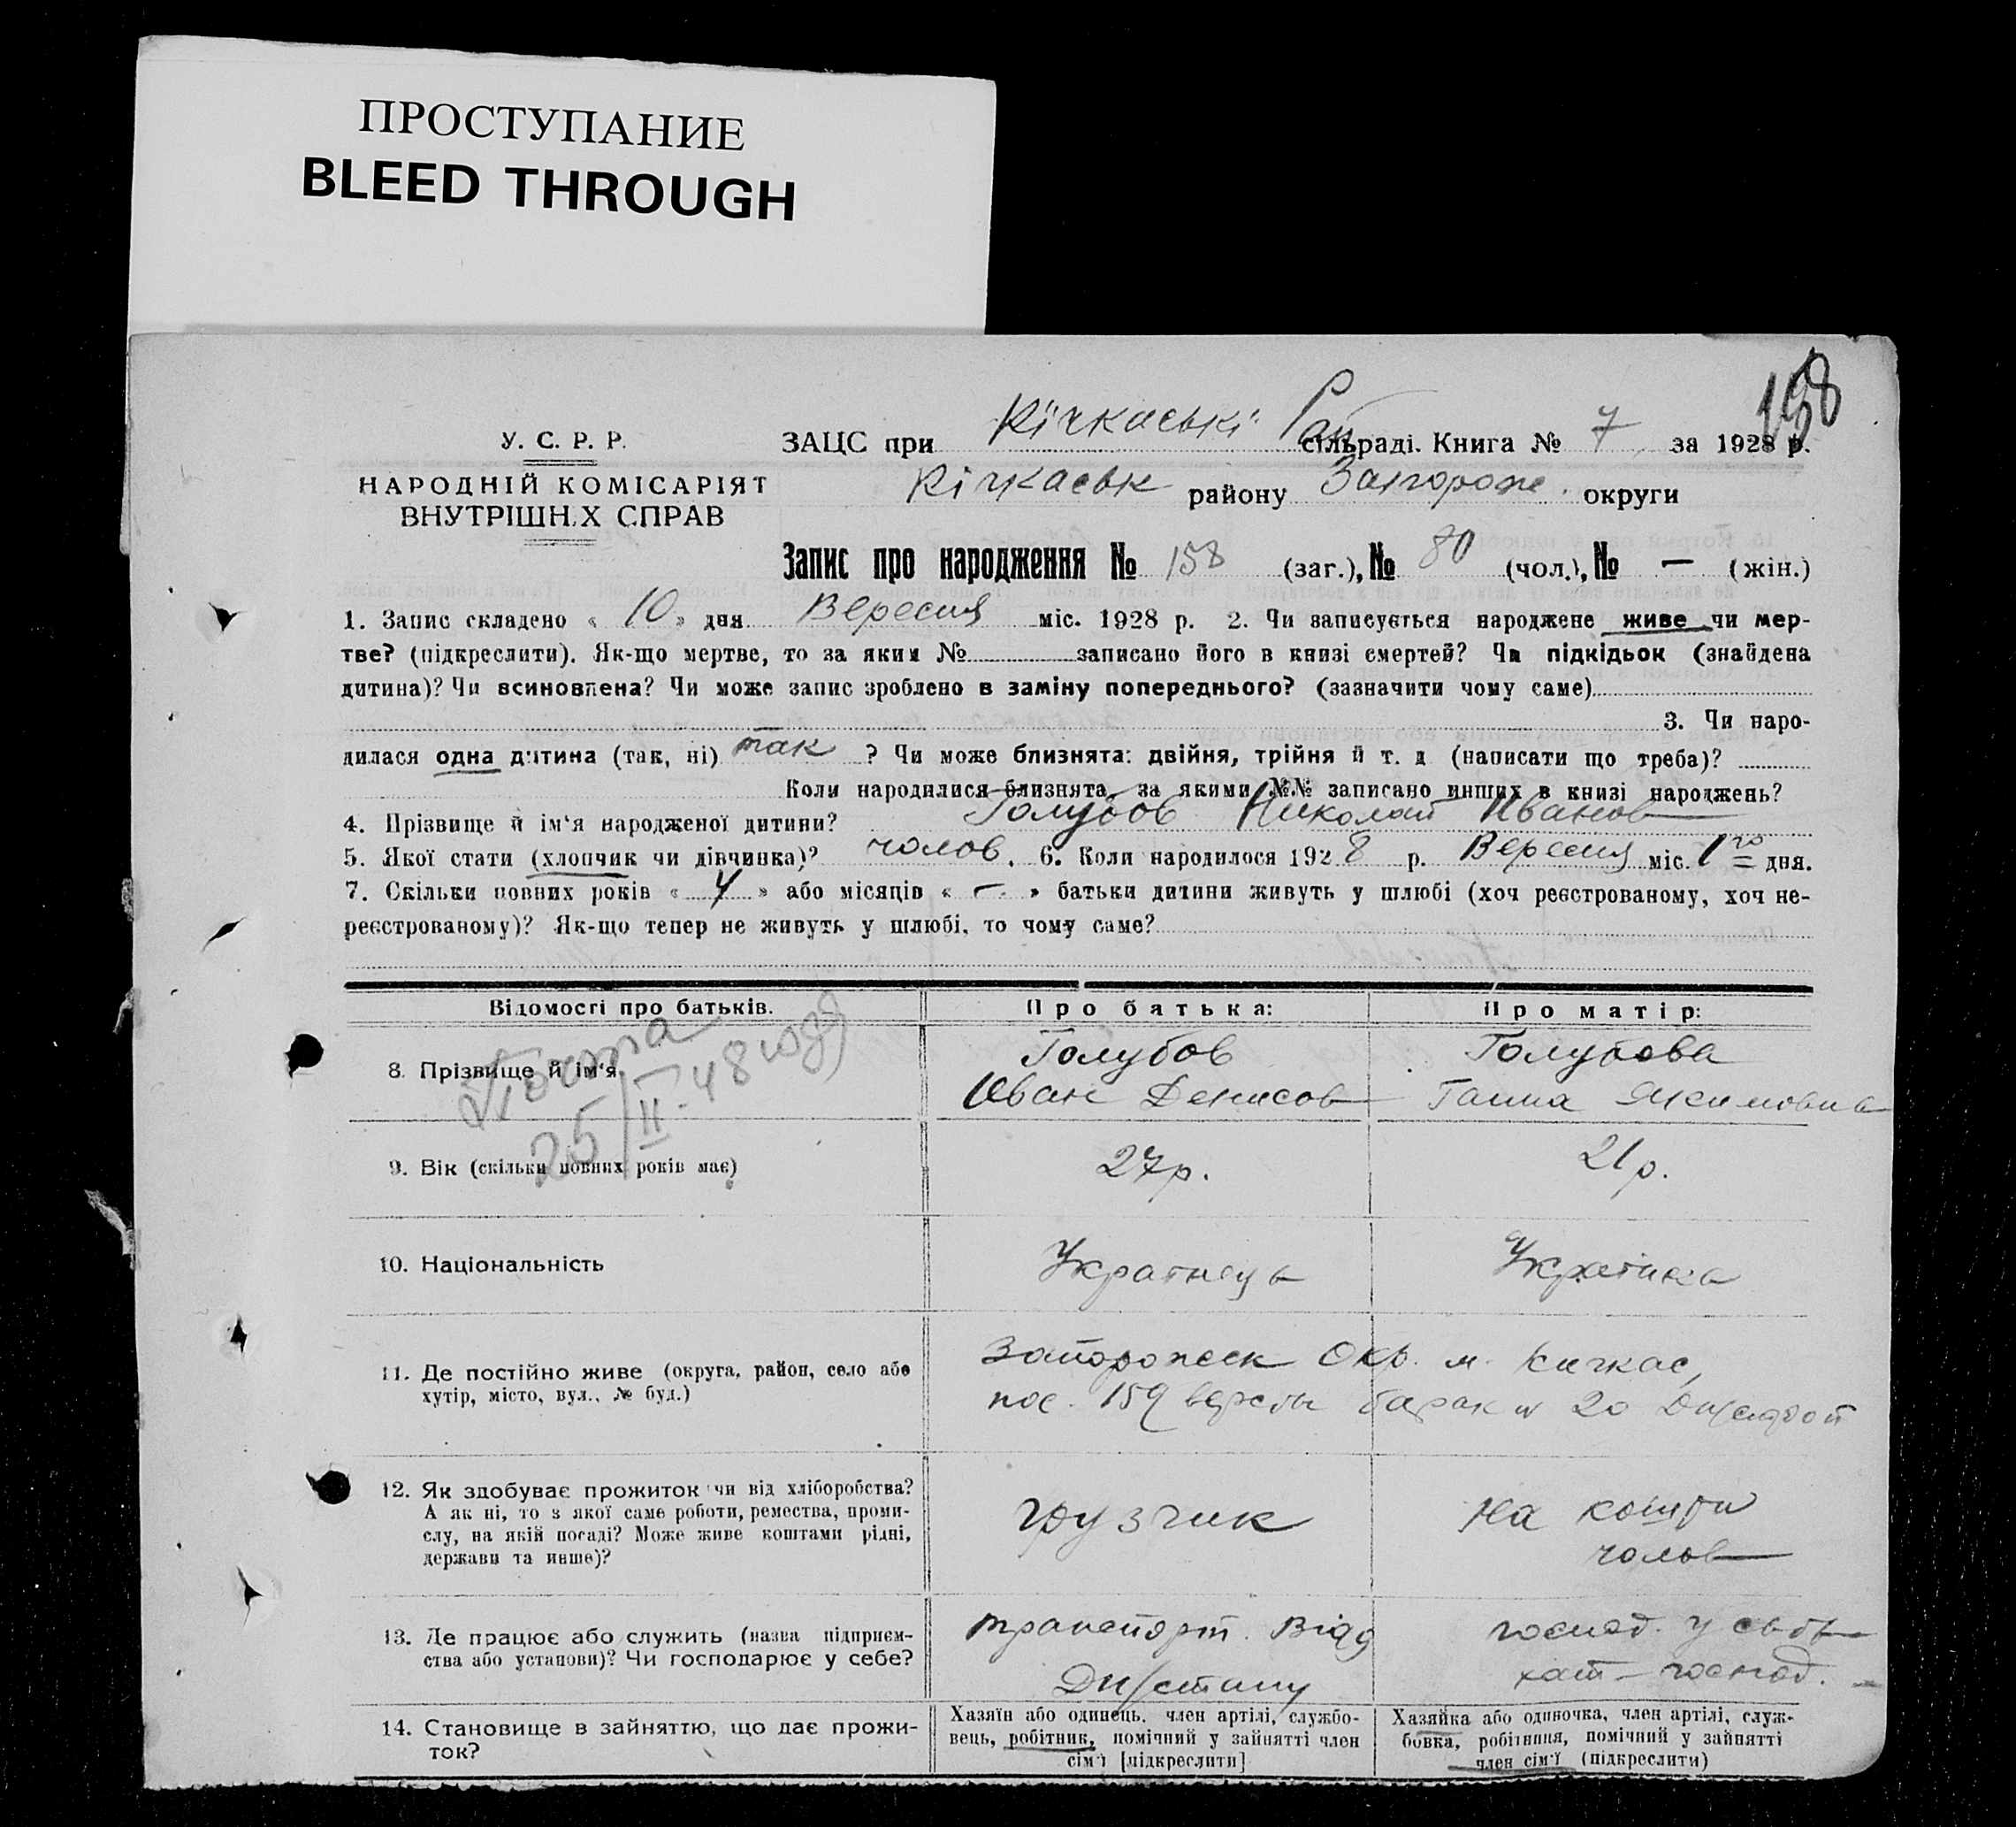 ПРОСТУПАНИЕ
BLEED THROUGH
158
У. С. Р. Р.
НАРОДНІЙ КОМІСАРІЯТ
ВНУТРІШНІХ СПРАВ
ЗАЦС при Кічкаські Рай сільраді. Книга № 7 за 1928 р.
Кічкаськ району Запороже. округи
Запис про народження № 158 (заг.), № 80 (чол.), № — (жін.)
1. Запис складено « 10 » дня Вересня міс. 1928 р. 2. Чи записується народжене живе чи мер-
тве? (підкреслити). Як-що мертве, то за яким № записано його в книзі смертей? Чи підкідьок (знайдена
дитина)? Чи всиновлена? Чи може запис зроблено в заміну попереднього? (зазначити чому саме)
3. Чи наро-
дилася одна дитина (так, ні) так ? Чи може близнята: двійня, трійня й т. д (написати що треба)?
Коли народилися близнята, за якими №№ записано инших в книзі народжень?
4. Прізвище й ім'я народженої дитини? Голубов Николай Иванов
5. Якої стати (хлопчик чи дівчинка)? чолов. 6. Коли народилося 1928 р. Вересня міс. 1го дня.
7. Скільки повних років « 4 » або місяців « — » батьки дитини живуть у шлюбі (хоч реєстрованому, хоч не-
реєстрованому)? Як-що тепер не живуть у шлюбі, то чому саме?
Відомості про батьків. Про батька: Про матір:
25/II-48 года
8. Прізвище й ім'я Голубов Голубова
Иван Денисов Ганна Якимовна
9. Вік (скільки повних років має) 27р. 21р.
10. Національність Українець Українка
11. Де постійно живе (округа, район, село або
хутір, місто, вул., № буд.)
Запорожск Окр. м. Кичкас,
пос. 159 версты барак № 20
12. Як здобуває прожиток чи від хліборобства?
А як ні, то з якої саме роботи, ремества, проми-
слу, на якій посаді? Може живе коштами рідні,
держави та инше)?
грузчик
на кошти
чолов
13. Де працює або служить (назва підприєм-
ства або установи)? Чи господарює у себе?
транспорт. Відд
господ. у
хат господ.
14. Становище в зайняттю, що дає прожи-
ток?
Хазяїн або одинець, член артілі, службо-
вець, робітник, помічний у зайнятті член
сім'ї [підкреслити]
Хазяйка або одиночка, член артілі, служ-
бовка, робітниця, помічний у зайнятті
член сім'ї (підкреслити)